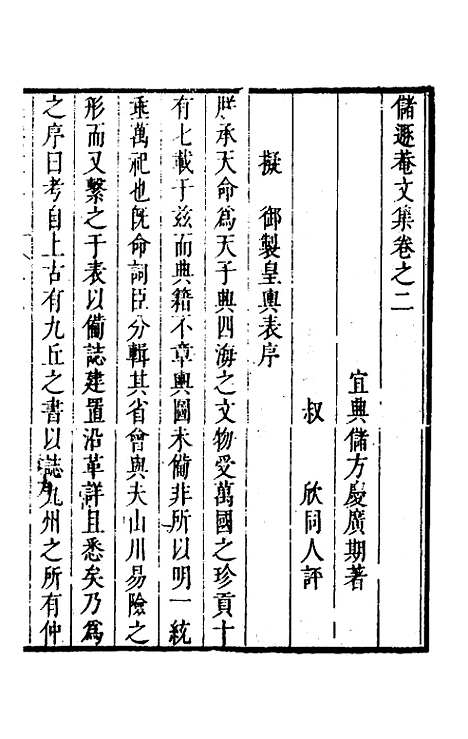 儲遯菴文集卷之二
宜興儲方慶廣期著
叔 欣同人評
擬 御製皇輿表序
朕承天命為天子典四海之文物受萬國之珍貢十
有七載于兹而典籍不章輿圖未備非所以明一統
垂萬祀也旣命詞臣分輯其省會與夫山川易險之
形而又繫之于表以備誌建置沿革詳且悉矣乃為
之序曰考自上古有九丘之書以誌九州之所有仲